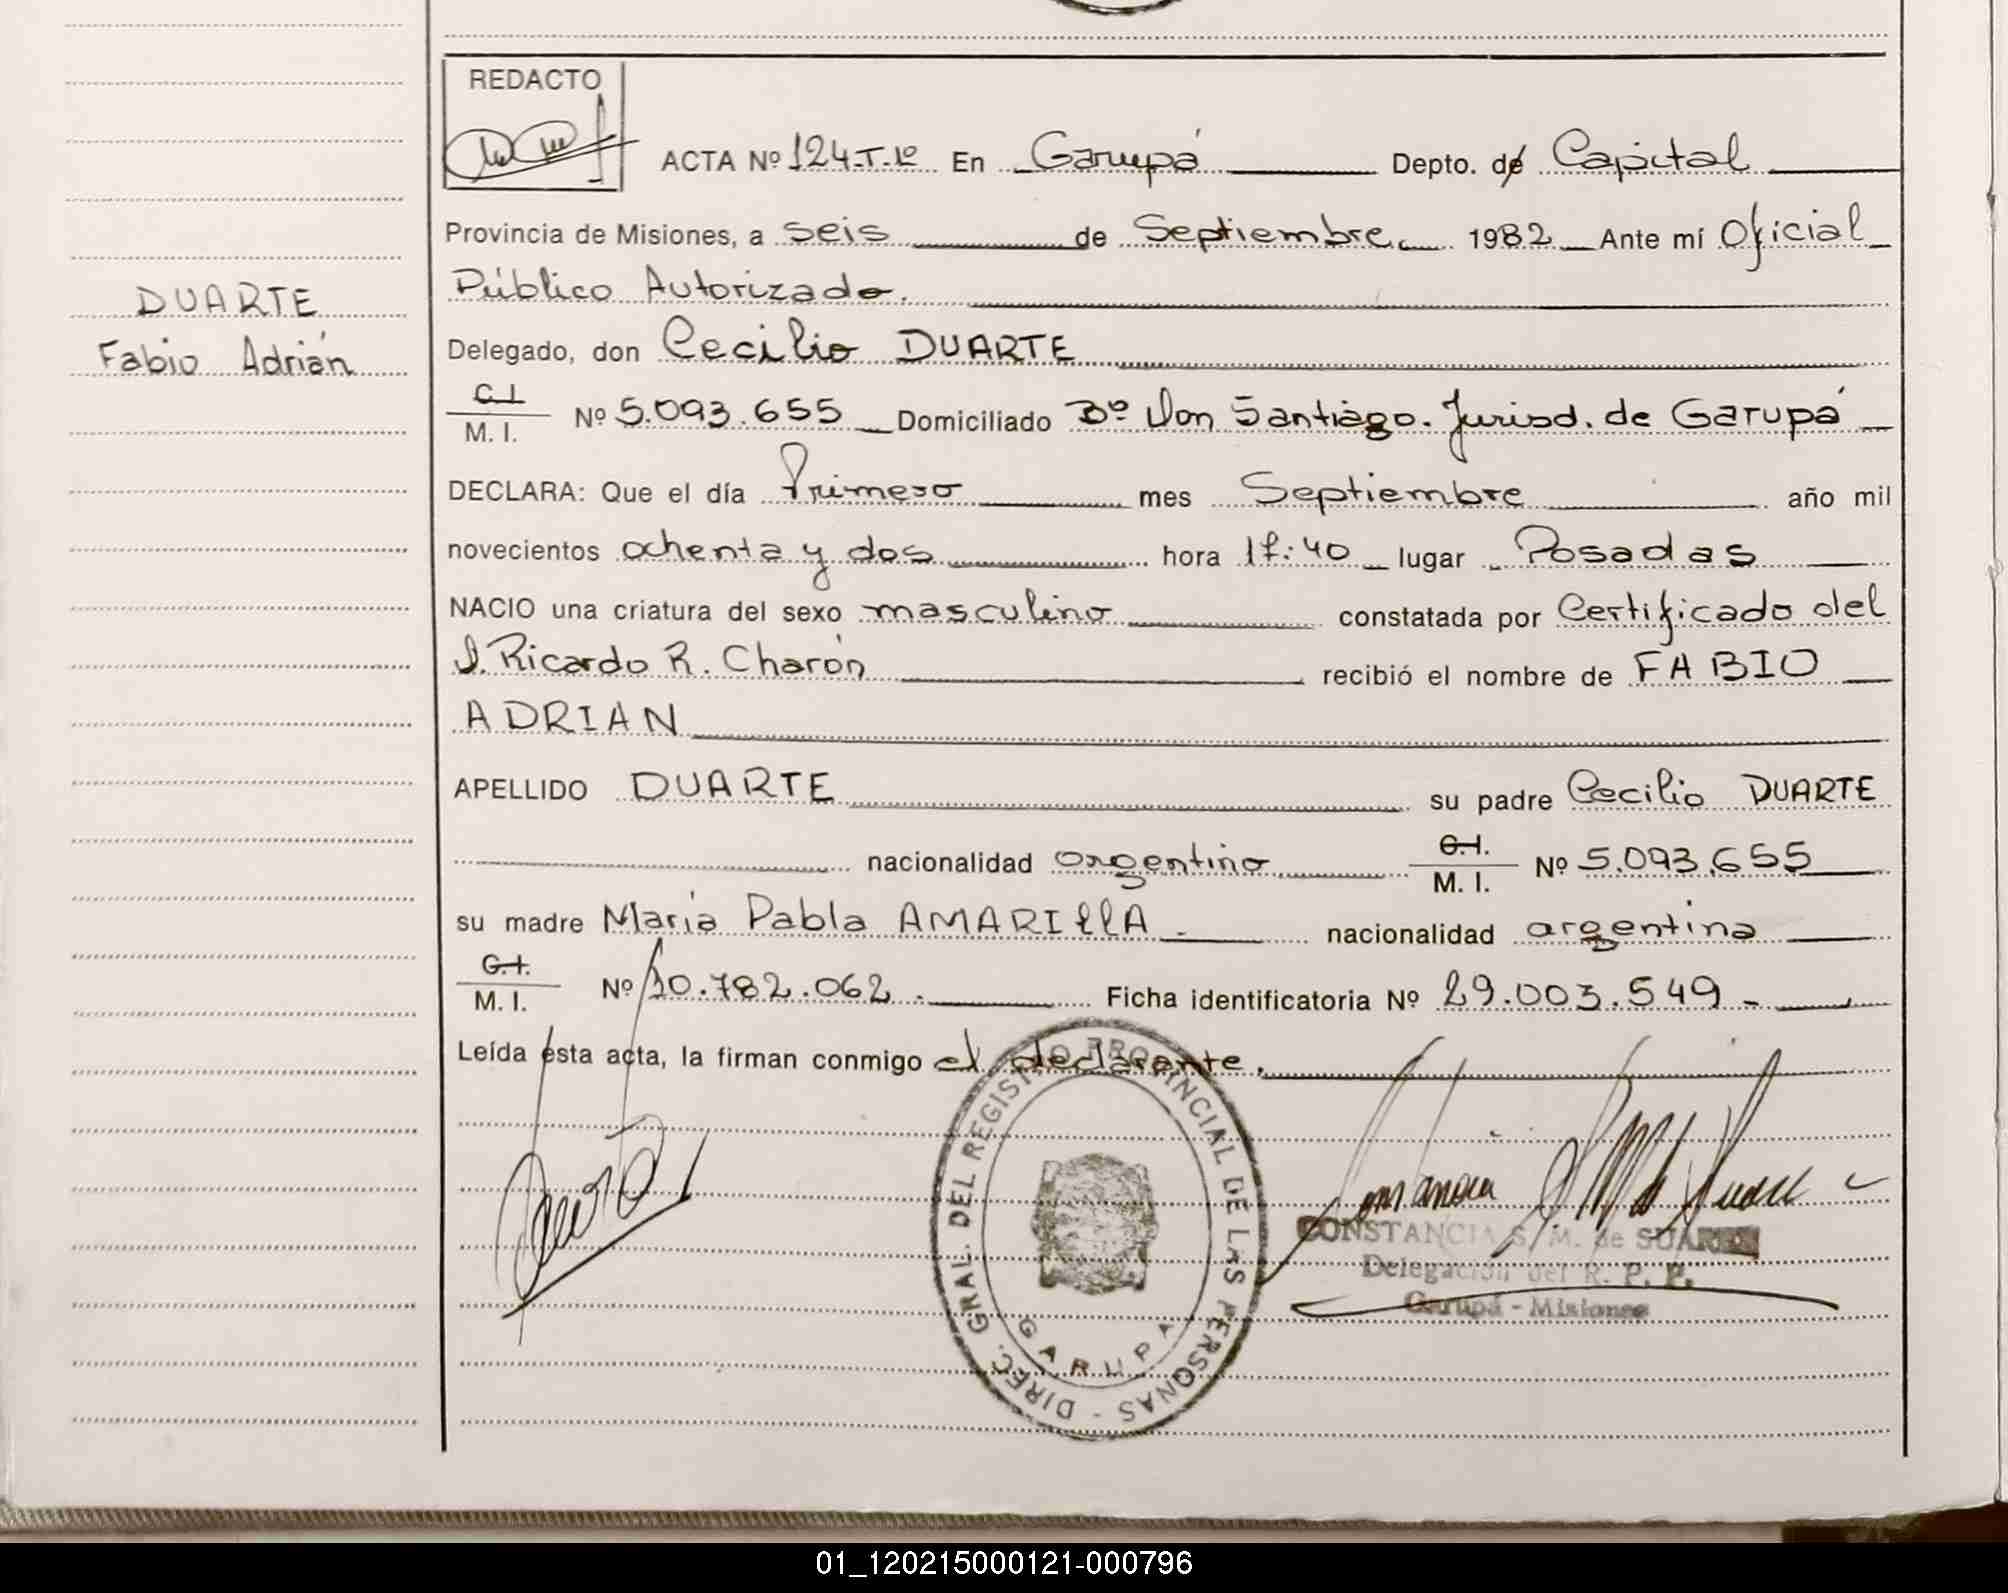 REDACTO
ACTA Nº 124-T.1º En Garupá Depto. de Capital
Provincia de Misiones, a seis de Septiembre 1982 Ante mí Oficial
Público Autorizado.
DUARTE
Fabio Adrián
Delegado, don Cecilio DUARTE
C.I. M. I. Nº 5.093.655 Domiciliado Bº Don Santiago. Jurisd. de Garupá
DECLARA: Que el día Primero mes Septiembre año mil
novecientos ochenta y dos hora 17:40 lugar Posadas
NACIO una criatura del sexo masculino constatada por Certificado del
D. Ricardo R. Charón recibió el nombre de FABIO
ADRIAN
APELLIDO DUARTE su padre Cecilio DUARTE
nacionalidad argentino C.I. M. I. Nº 5.093.655
su madre María Pabla AMARILLA. nacionalidad argentina
C.I. M. I. Nº 10.782.062. Ficha identificatoria Nº 29.003.549-
Leída esta acta, la firman conmigo el declarante.
DIREC. GRAL. DEL REGISTRO PROVINCIAL DE LAS PERSONAS -
GARUPA
CONSTANCIA S. M. de SUAREZ
Delegación del R. P. P.
Garupá - Misiones
01_120215000121-000796